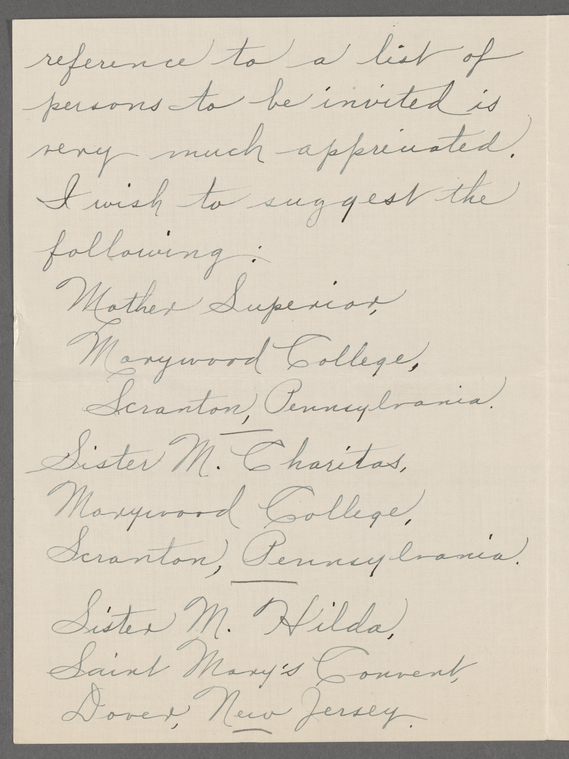 reference to a list of
persons to be invited is
very much appriciated.
I wish to suggest the
following:
Mother Superior,
Marywood College,
Scranton, Pennsylvania.
Sister M. Charitas,
Marywood College,
Scranton, Pennsylvania.
Sister M. Hilda,
Saint Mary's Convent,
Dover, New Jersey.